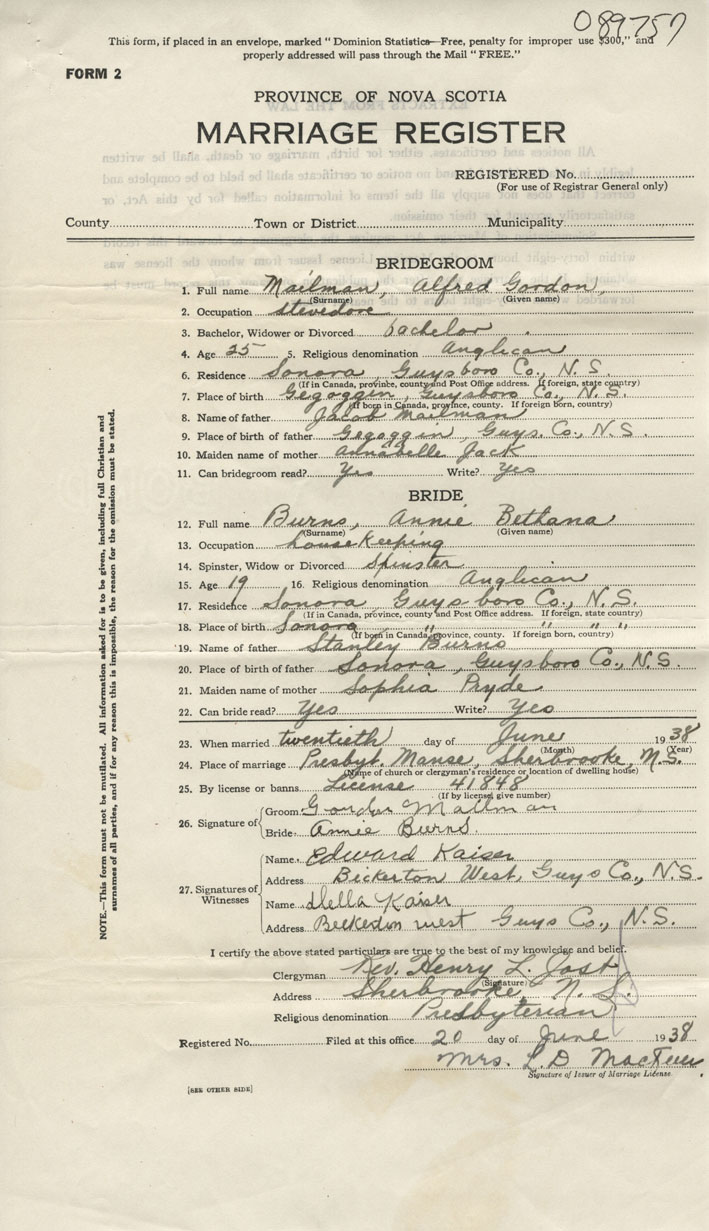 089757
This form, if placed in an envelope, marked "Dominion Statistics—Free, penalty for improper use $300," and
properly addressed will pass through the Mail "FREE."
FORM 2
PROVINCE OF NOVA SCOTIA
MARRIAGE REGISTER
REGISTERED No.
(For use of Registrar General only)
County Town or District Municipality
BRIDEGROOM
1. Full name Mailman, Alfred Gordon
(Surname) (Given name)
2. Occupation stevedore
3. Bachelor, Widower or Divorced bachelor
4. Age 25 5. Religious denomination Anglican
6. Residence Sonora, Guysboro Co., N.S.
(If in Canada, province, county and Post Office address. If foreign, state country)
7. Place of birth Gegoggin, Guysboro Co., N.S.
(If born in Canada, province, county. If foreign born, country)
8. Name of father Jacob Mailman
9. Place of birth of father Gegoggin Guys. Co., N.S.
10. Maiden name of mother Annabelle Jack
11. Can bridegroom read? Yes Write? Yes
BRIDE
12. Full name Burns, Annie Bethana
(Surname) (Given name)
13. Occupation housekeeping
14. Spinster, Widow or Divorced Spinster
15. Age 19 16. Religious denomination Anglican
17. Residence Sonora Guysboro Co., N.S.
(If in Canada, province, county and Post Office address. If foreign, state country)
18. Place of birth Sonora " " " "
(If born in Canada, province, county. If foreign born, country)
19. Name of father Stanley Burns
20. Place of birth of father Sonora, Guysboro Co., N.S.
21. Maiden name of mother Sophia Pryde
22. Can bride read? Yes Write? Yes
23. When married twentieth day of June 1938
(Month) (Year)
24. Place of marriage Presbyt. Manse, Sherbrooke, N.S.
(Name of church or clergyman's residence or location of dwelling house)
25. By license or banns License 41848
(If by license, give number)
26. Signature of Groom Gordon Mailman
Bride Annie Burns
27. Signatures of Witnesses
Name Edward Kaiser
Address Bickerton West, Guys Co., N.S.
Name Kaiser
Address west Guys Co., N.S.
I certify the above stated particulars are true to the best of my knowledge and belief.
Clergyman Rev. Henry L. Jost
(Signature)
Address Sherbrooke, N.S.
Religious denomination Presbyterian
Registered No. Filed at this office 20 day of June 1938
Mrs. L D
Signature of Issuer of Marriage License.
[SEE OTHER SIDE]
NOTE.—This form must not be mutilated. All information asked for is to be given, including full Christian and
surnames of all parties, and if for any reason this is impossible, the reason for the omission must be stated.